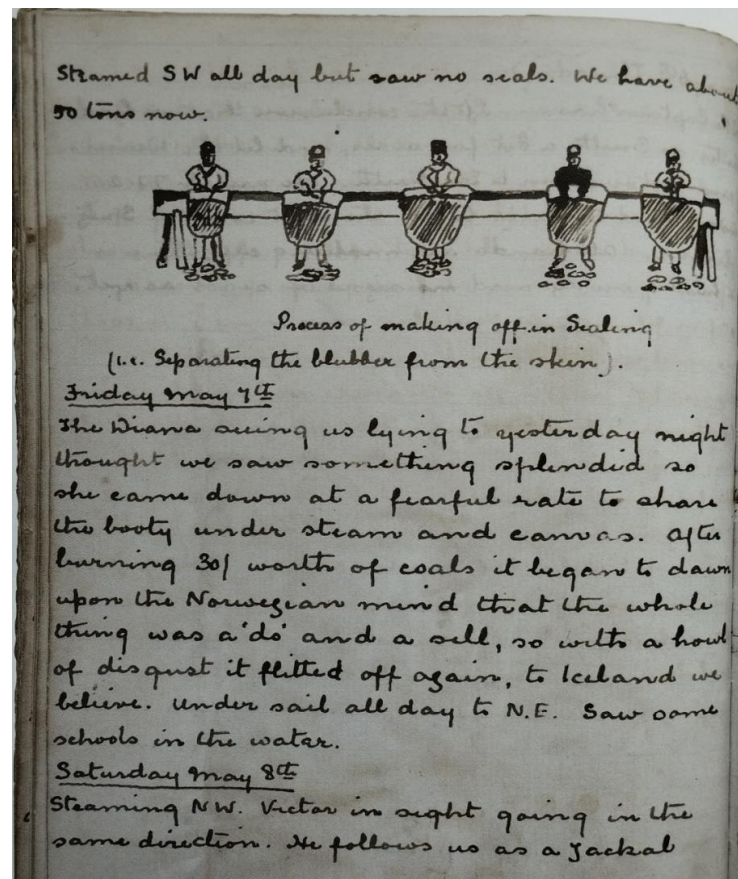 Steamed SW all day but saw no seals. We have about
50 tons now.
Process of making off in Sealing
(i.e. Separating the blubber from the skin).
Friday May 7th
The Diana seeing us lying to yesterday night
thought we saw something splendid so
she came down at a fearful rate to share
the booty under steam and canvas. After
burning 30/ worth of coals it began to dawn
upon the Norwegian mind that the whole
thing was a 'do' and a sell, so with a howl
of disgust it flitted off again, to Iceland we
believe. Under sail all day to N.E. Saw some
schools in the water.
Saturday May 8th
Steaming NW. Victor in sight going in the
same direction. He follows us as a Jackal